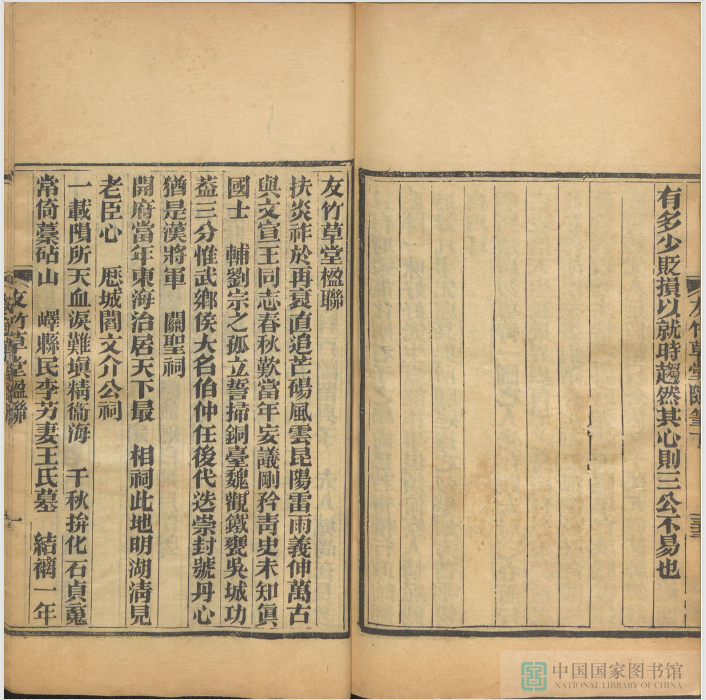 有多少貶損以就時趨然其心則三公不易也
友竹草堂隨筆下
三三
友竹草堂楹聯
扶炎祚於再衰直追芒碭風雲昆陽雷雨義伸萬古
與文宣王同志春秋歎當年妄議剛矜靑史未知眞
國士　輔劉宗之孤立誓掃銅臺魏觀鐵甕吳城功
蓋三分惟武鄉侯大名伯仲任後代迭崇封號丹心
猶是漢將軍　關聖祠
開府當年東海治居天下最　相祠此地明湖淸見
老臣心　歷城閻文介公祠
一載隕所天血淚難塡精衞海　千秋拚化石貞寃
常倚藁砧山　嶧縣民李芳妻王氏墓　結褵一年
友竹草堂楹聯
一
中国国家图书馆
NATIONAL LIBRARY OF CHINA